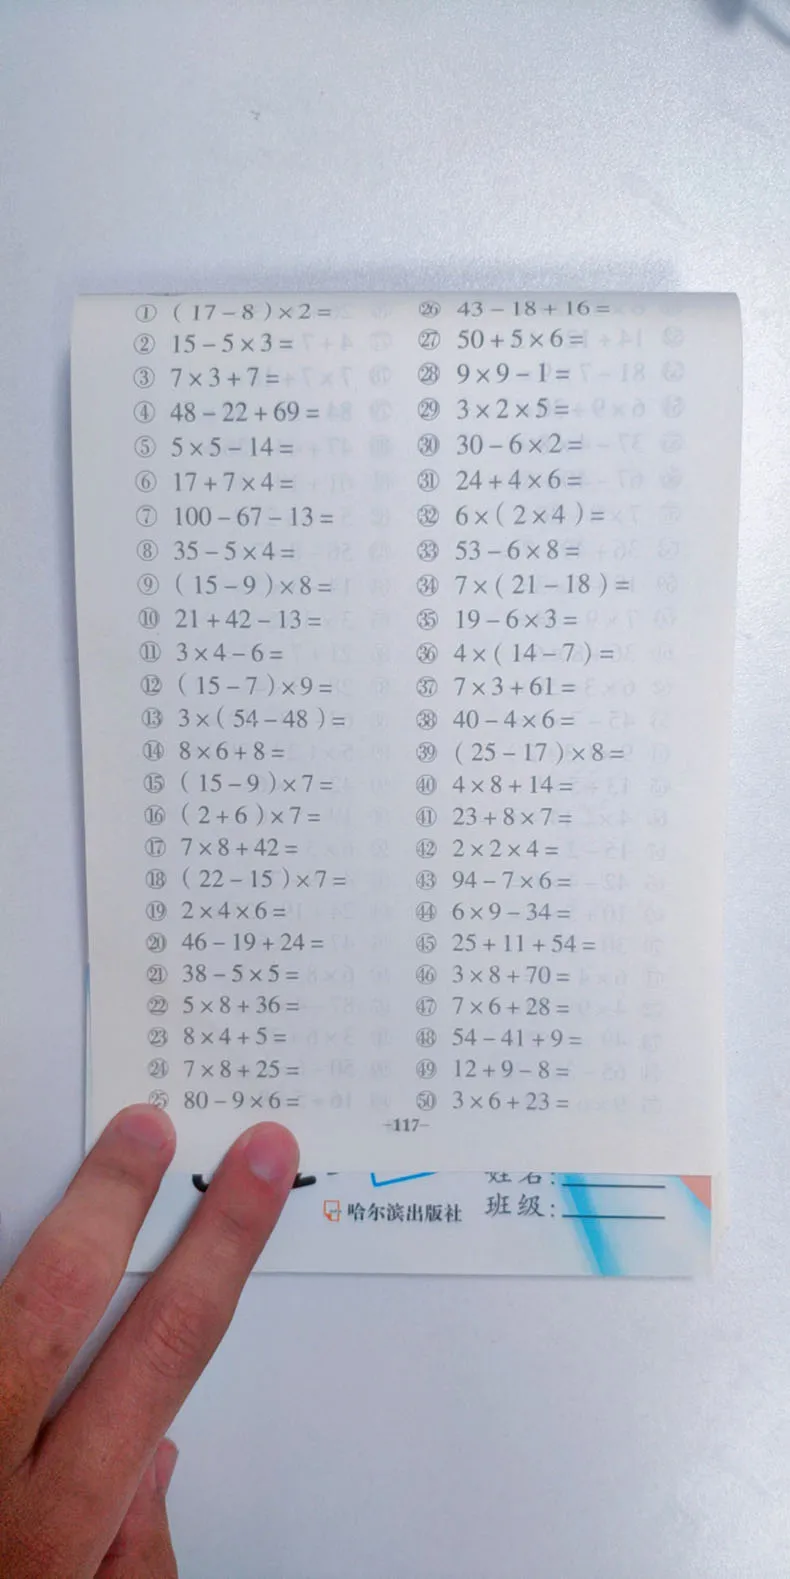 ① (17-8)×2=
② 15-5×3=
③ 7×3+7=
④ 48-22+69=
⑤ 5×5-14=
⑥ 17+7×4=
⑦ 100-67-13=
⑧ 35-5×4=
⑨ (15-9)×8=
⑩ 21+42-13=
⑪ 3×4-6=
⑫ (15-7)×9=
⑬ 3×(54-48)=
⑭ 8×6+8=
⑮ (15-9)×7=
⑯ (2+6)×7=
⑰ 7×8+42=
⑱ (22-15)×7=
⑲ 2×4×6=
⑳ 46-19+24=
㉑ 38-5×5=
㉒ 5×8+36=
㉓ 8×4+5=
㉔ 7×8+25=
㉕ 80-9×6=
㉖ 43-18+16=
㉗ 50+5×6=
㉘ 9×9-1=
㉙ 3×2×5=
㉚ 30-6×2=
㉛ 24+4×6=
㉜ 6×(2×4)=
㉝ 53-6×8=
㉞ 7×(21-18)=
㉟ 19-6×3=
㊱ 4×(14-7)=
㊲ 7×3+61=
㊳ 40-4×6=
㊴ (25-17)×8=
㊵ 4×8+14=
㊶ 23+8×7=
㊷ 2×2×4=
㊸ 94-7×6=
㊹ 6×9-34=
㊺ 25+11+54=
㊻ 3×8+70=
㊼ 7×6+28=
㊽ 54-41+9=
㊾ 12+9-8=
㊿ 3×6+23=
-117-
姓名:
哈尔滨出版社
班级: